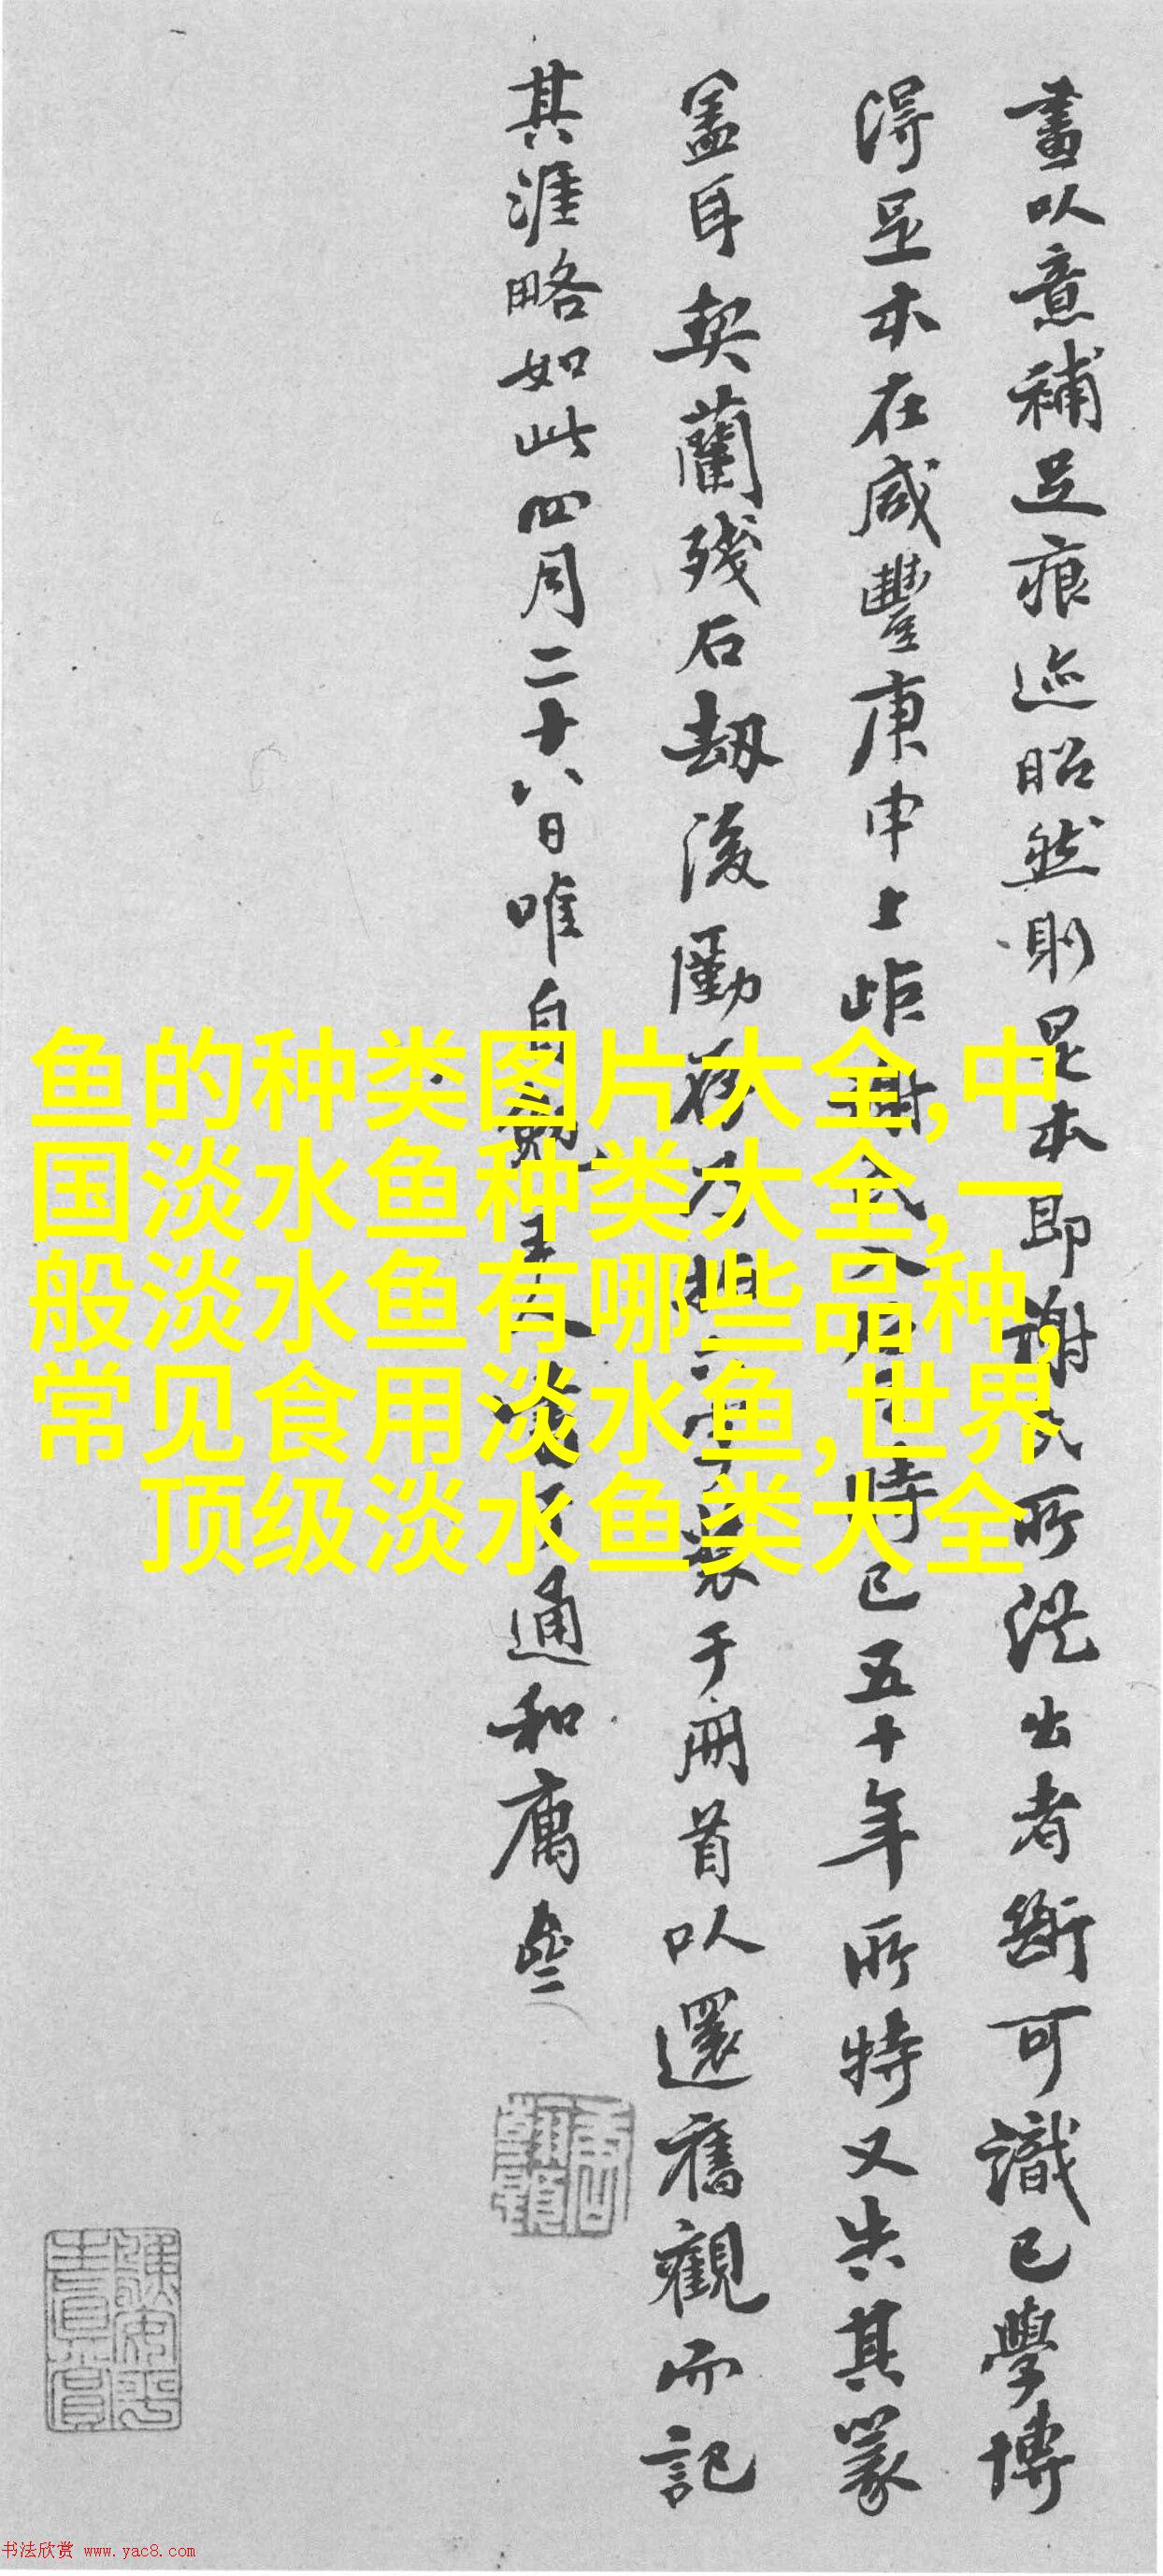 畫以意補足痕迹昭然則是本即謝氏所從出者斷可識已學博
得足本在咸豐庚申上距謝氏入石時已五十年所特又失其篆
盖耳契蘭殘石劫後僅存乃拓二字裝于册首以還舊觀而記
其涯略如此四月二十八日唯自勉主人
通和
鱼的种类图片大全,中
国淡水鱼种类大全,一
般淡水鱼有哪些品种,
常见食用淡水鱼,世界
顶级淡水鱼类大全
书法欣赏 www.yac8.com